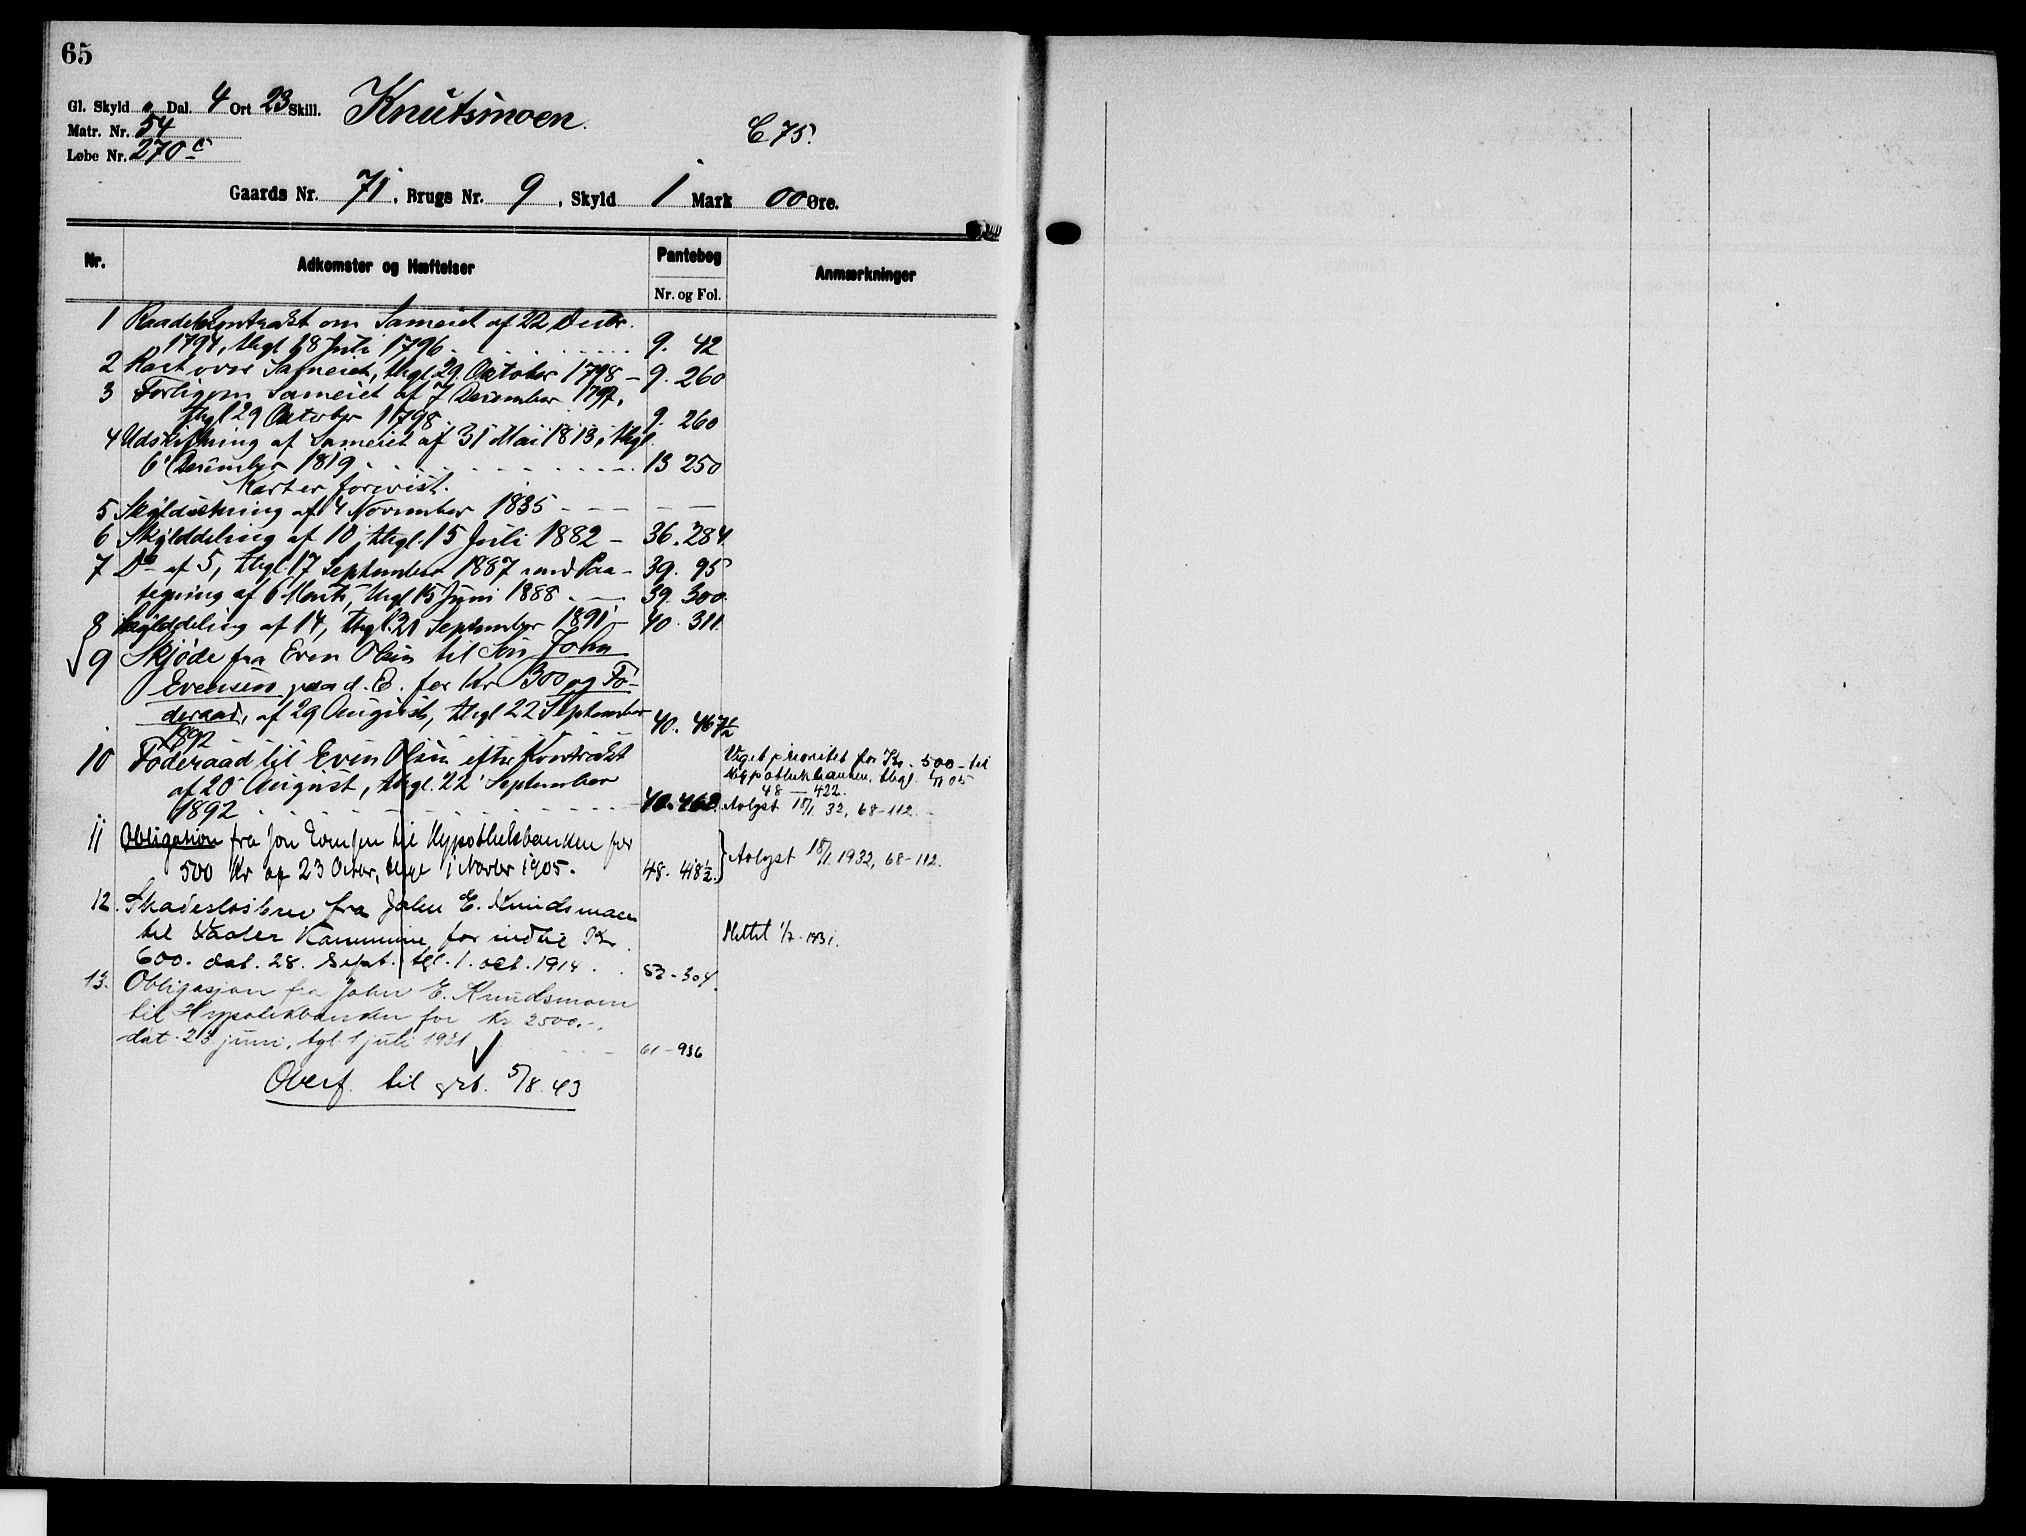 65
Gl. Skyld " Dal. 4 Ort 23 Skill. Knutsmoen.
Matr. Nr. 54
C 75.
Løbe Nr. 270 c
Gaards Nr. 71, Brugs Nr. 9, Skyld 1 Mark 00 Øre.
Nr. Adkomster og Hæftelser Pantebog Nr. og Fol. Anmærkninger
1 Kontrakt om Sameiet af 22 Decbr.
1794, thgl 8 Juli 1796 . . . 9. 42
2 Kart over Sameiet, thgl. 29 Oktober 1798 — 9. 260
3 Forlig om Sameiet af 7 December 1797,
thgl 29 Oktober 1798 . . 9. 260
4 Udskiftning af Sameiet af 31 Mai 1813, thgl.
6 December 1819 . . . 13 250
Kart er forevist.
5 Skyldsætning af 4 November 1835 — — —
6 Skylddeling af 10, thgl. 15 Juli 1882 — 36. 284
7 Do af 5, thgl 17 September 1887 med Paa- 39. 95
tegning af 6 Marts, thgl 15 Juni 1888 . — 39. 300.
8 Skylddeling af 14, thgl. 21 September 1891 — 40. 311.
9 Skjøde fra Even Olsen til Søn John
Evensen paa d. E. for Kr 300 og Fø-
deraad, af 29 August, thgl 22 September
1892 . . . 40. 467½
10 Føderaad til Even Olsen efter Kontrakt
af 20 August, thgl. 22 September
1892 . . . 40. 468.
Veget prioritet for Kr. 500 - til
Hypothekbanken, thgl. 1/11 05
48 — 422.
Avlyst 18/1 32, 68-112.
11 Obligation fra Jon Evensen til Hypothekbanken for
500 Kr af 23 Octbr, thgl 1 Novbr 1905. 48. 418½. } Avlyst 18/1. 1932, 68-112.
12. Skadesløsbrev fra John E. Knudsmoen
til Vaaler Kommune, for indtil Kr
600. dat. 28. sept. tgl. 1. oct. 1914 . . 53 - 304.
Slettet 1/7 - 1931.
13. Obligasjon fra John E. Knudsmoen
til Hypotekbanken for kr 2500.-,
dat. 23 juni, tgl. 1 juli 1931 . . — 61 - 936
Overf. til grb. 5/8. 43